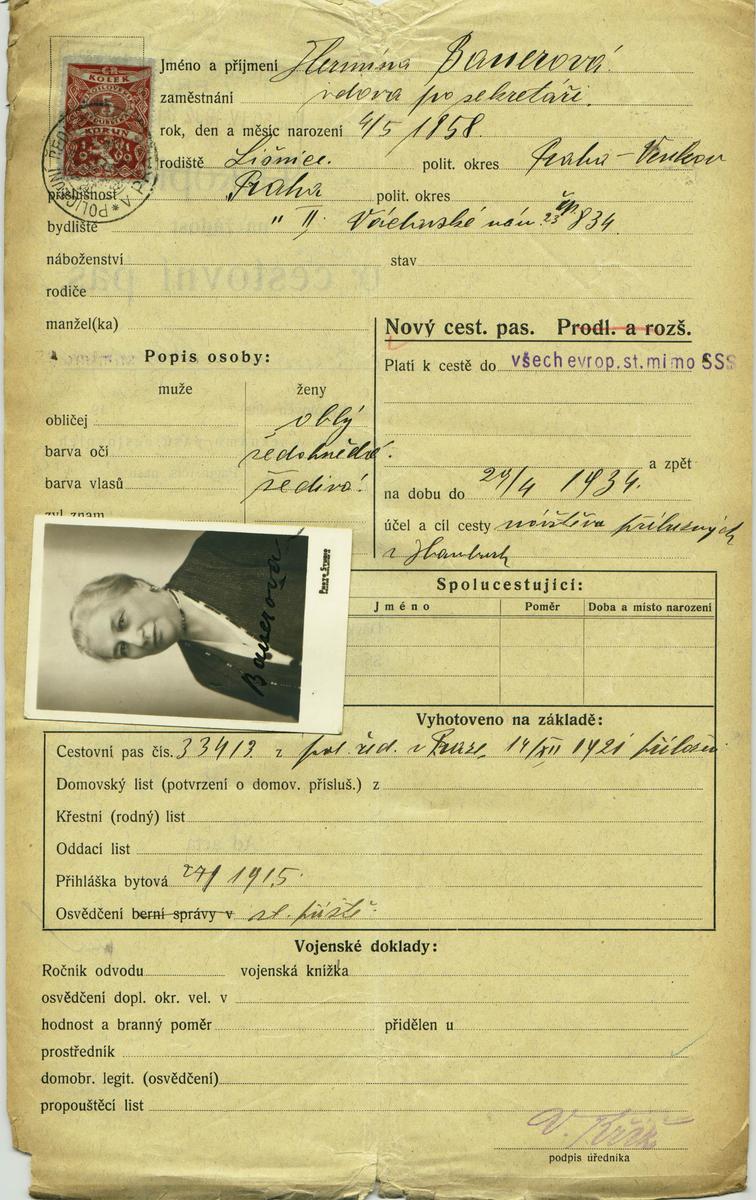 Jméno a příjmení Hermina Bauerová.
zaměstnání vdova po sekretáři.
rok, den a měsíc narození 4/5 1858.
rodiště Líšnice. polit. okres Praha-Venkov
příslušnost Praha polit. okres
bydliště " II. Václavské nám. čp. 834.
náboženství stav
rodiče
manžel(ka)
Nový cest. pas. Prodl. a rozš.
Popis osoby:
Platí k cestě do všech evrop. st. mimo SSS
muže ženy
obličej oblý
barva očí šedohnědé.
a zpět
barva vlasů šedivá.
na dobu do 1934.
zvl. znam.
účel a cíl cesty návštěva příbuzných
v Hamburk
Photo Studio
Bauerova
Spolucestující:
Jméno Poměr Doba a místo narození
Vyhotoveno na základě:
Cestovní pas čís. 33413 z pol. řed. v Praze, 14/XII 1921
Domovský list (potvrzení o domov. přísluš.) z
Křestní (rodný) list
Oddací list
Přihláška bytová 1915.
Osvědčení berní správy v
Vojenské doklady:
Ročník odvodu vojenská knížka
osvědčení dopl. okr. vel. v
hodnost a branný poměr přidělen u
prostředník
domobr. legit. (osvědčení)
propouštěcí list
V. Kříž
podpis úředníka
KOLEK
KORUN